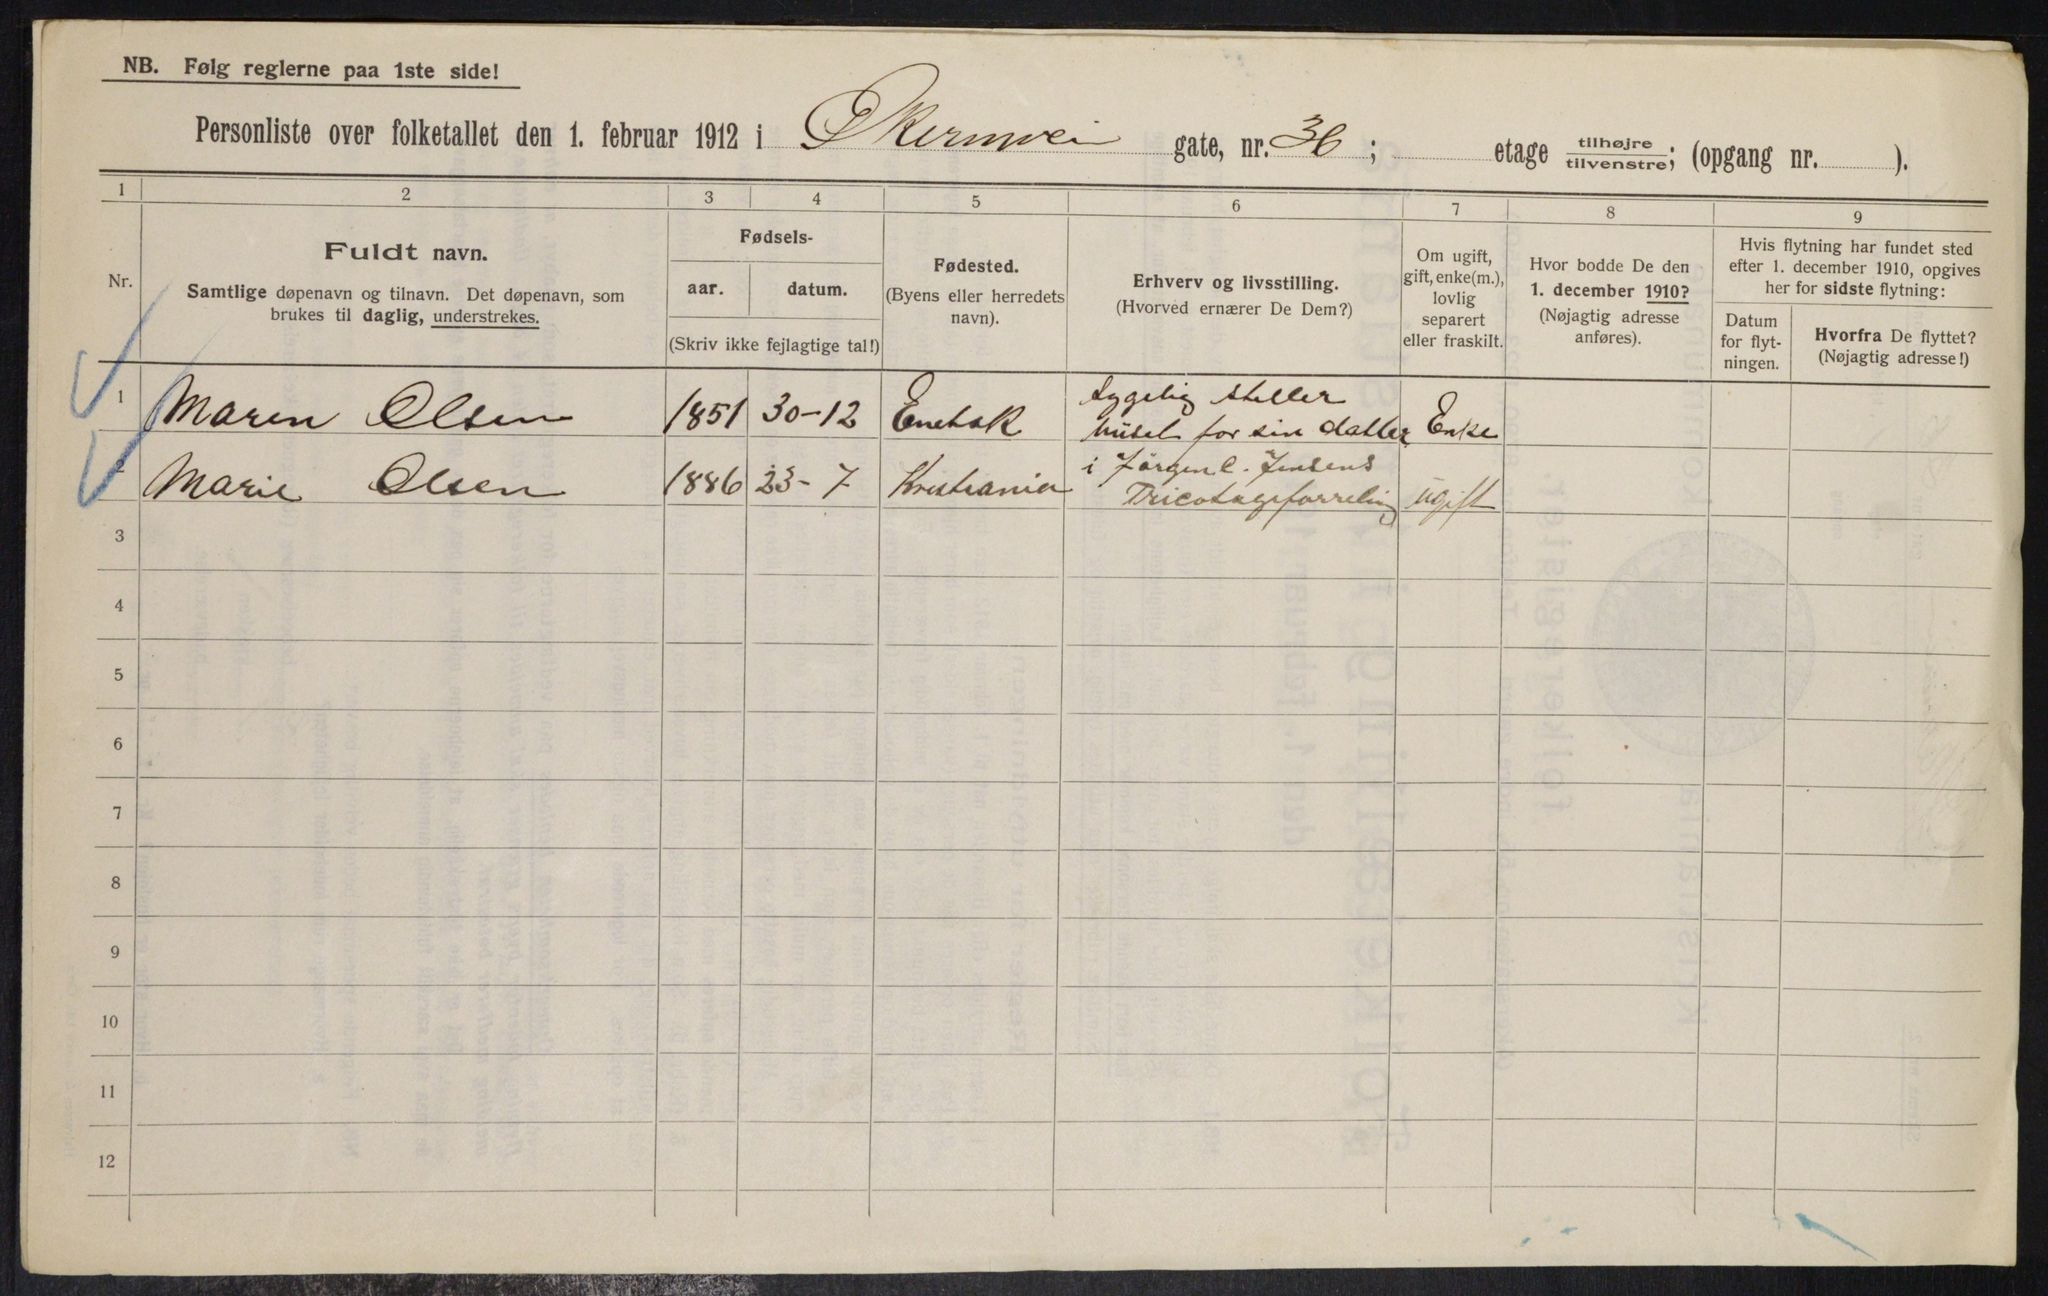 NB. Følg reglerne paa 1ste side!
Personliste over folketallet den 1. februar 1912 i Økernvei gate, nr. 36; etage tilhøjre/tilvenstre; (opgang nr. ).
1 2 3 4 5 6 7 8 9
Nr.
Fuldt navn.
Samtlige døpenavn og tilnavn. Det døpenavn, som
brukes til daglig, understrekes.
Fødsels-
aar. datum.
(Skriv ikke fejlagtige tal!)
Fødested.
(Byens eller herredets
navn).
Erhverv og livsstilling.
(Hvorved ernærer De Dem?)
Om ugift,
gift, enke(m.),
lovlig
separert
eller fraskilt.
Hvor bodde De den
1. december 1910?
(Nøjagtig adresse
anføres).
Hvis flytning har fundet sted
efter 1. december 1910, opgives
her for sidste flytning:
Datum
for flyt-
ningen.
Hvorfra De flyttet?
(Nøjagtig adresse!)
1 Maren Olsen 1851 30-12 Enebak Sygelig steller
huset for sin datter Enke
2 Marie Olsen 1886 23-7 Kristiania i Jörgen C. Jensens
Tricotageforretning ugift
3
4
5
6
7
8
9
10
11
12